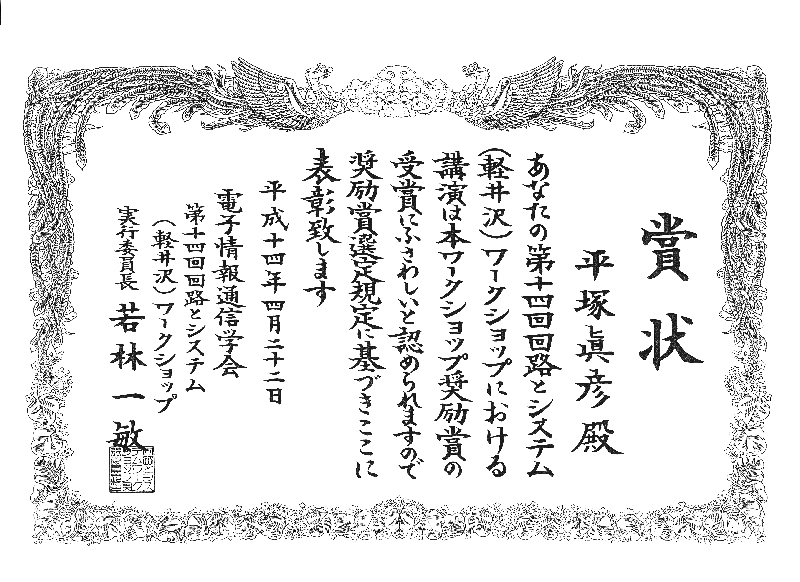 賞状
平塚眞彦殿
あなたの第十四回回路とシステム
(軽井沢)ワークショップにおける
講演は本ワークショップ奨励賞の
受賞にふさわしいと認められますので
奨励賞選定規定に基づきここに
表彰致します
平成十四年四月二十二日
電子情報通信学会
第十四回回路とシステム
(軽井沢)ワークショップ
実行委員長 若林一敏